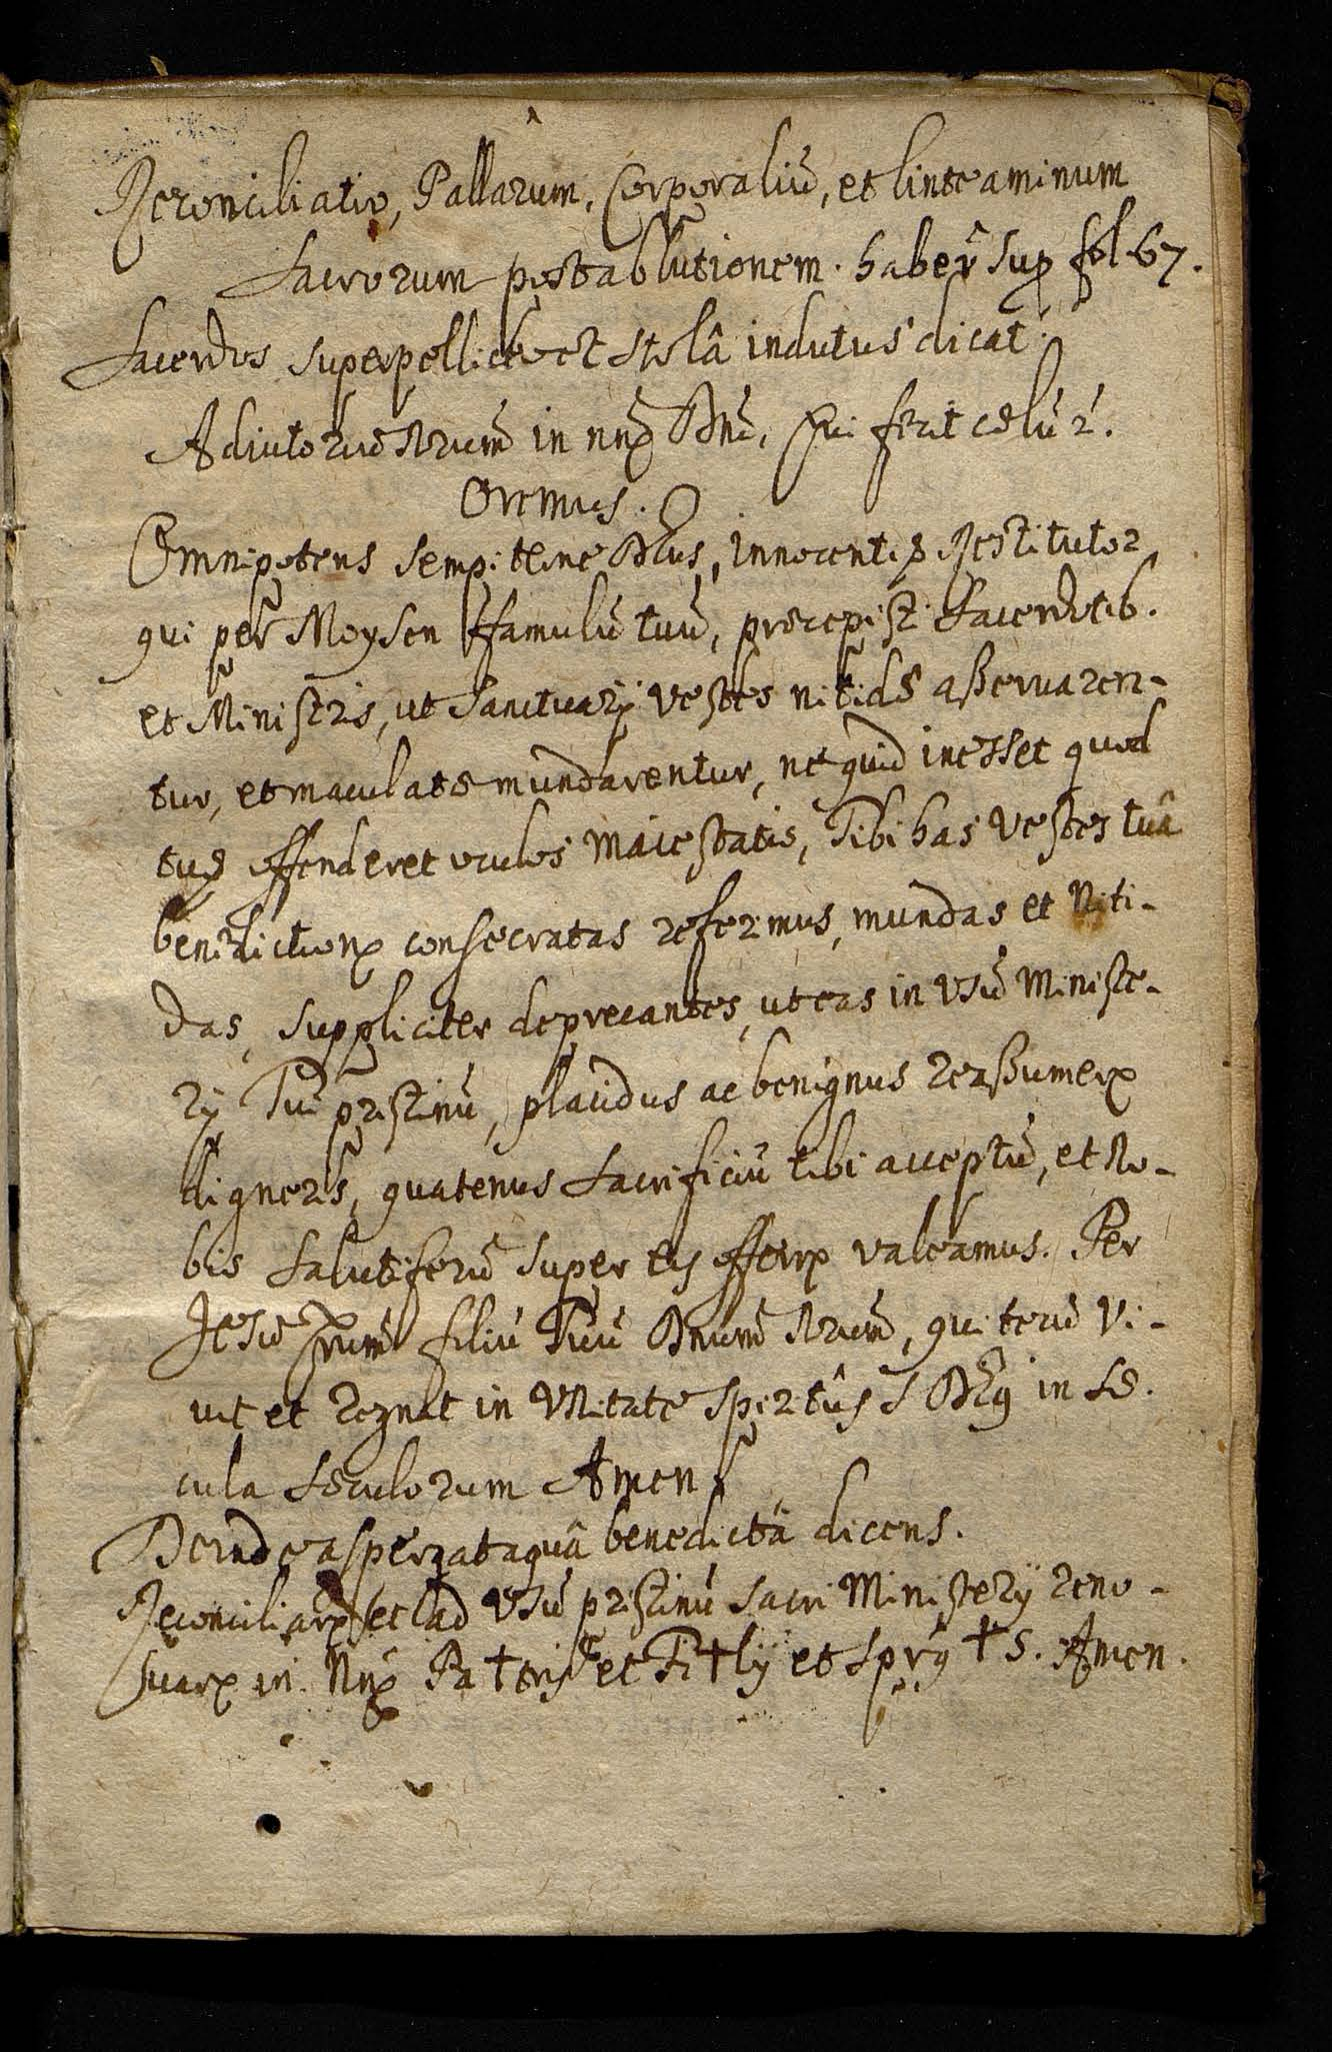 Reconciliatio, Pallarum, Corporaliū, et linteaminum
Sacrorum post ablutionem. haber̃ sup fol 67.
Sacerdos superpelliceo et Stolâ indutus dicat.
Adiutoriū nrum̄ in nne Dni, Qui fecit cęlū 2.
Oremus.
Omnipotens sempiterne Deus, Innocentię Restitutor
qui per Moysen ffamulū tuū, pręcepisti Sacerdotib.
et Ministris, ut Sanctuarij vestes nitidę aßeruaren-
tur, et maculatę mundarentur, ne quid inesset quod
tuę offenderet oculos Maiestatis, Tibi has vestes tuâ
benedictione consecratas referimus, mundas et Niti-
das, suppliciter deprecantes, ut eas in Usū Ministe-
rij Tui pristinū, placidus ac benignus reaßumere
digneris, quatenus Sacrificiū tibi acceptū, et No-
bis Salutiferū super eis offerre valeamus. Per
Jesū Xrum̄ filiū Tuū Dnum̄ Nrum̄, qui tecū Vi-
uit et regnat in Unitate Spiritûs S Deg in Sę-
cula Sęculorum Amen
Deinde aspergat aquâ benedictâ dicens.
Reconciliare et ad Usū pristinū Sacri Ministerij reno-
uare in Nne Pa † tris et Fi † lij et Sprg † S. Amen.